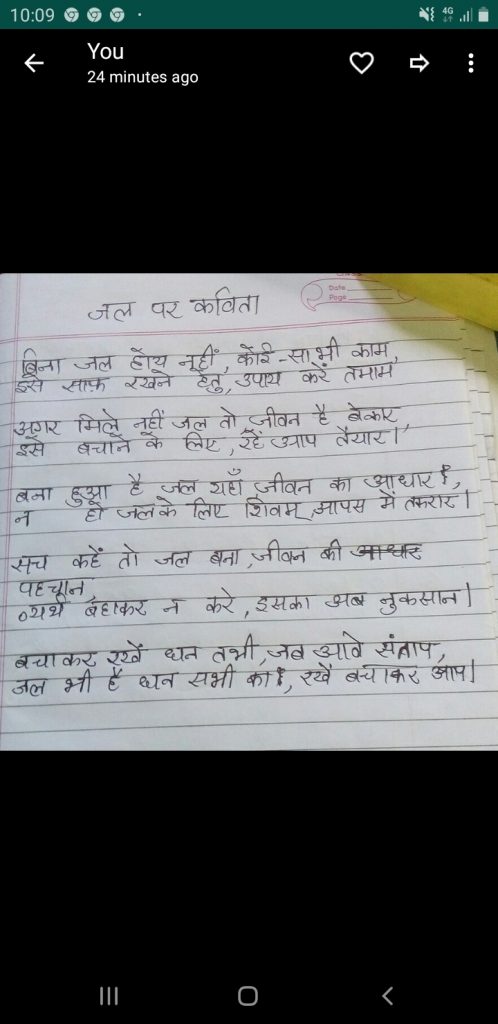 10:09
4G
You
24 minutes ago
Date
Page
जल पर कविता
बिना जल होय नहीं, कोई-सा भी काम,
इसे साफ़ रखने हेतु, उपाय करें तमाम
अगर मिले नहीं जल तो, जीवन है बेकार,
इसे बचाने के लिए, रहें आप तैयार।
बना हुआ है जल यहाँ, जीवन का आधार,
न हो जल के लिए शिवम, आपस में तकरार।
सच कहें तो जल बना, जीवन की आधार
पहचान,
व्यर्थ बहाकर न करे, इसका अब नुकसान।
बचाकर रखें धन तभी, जब आवे संताप,
जल भी है धन सभी का, रखें बचाकर आप।